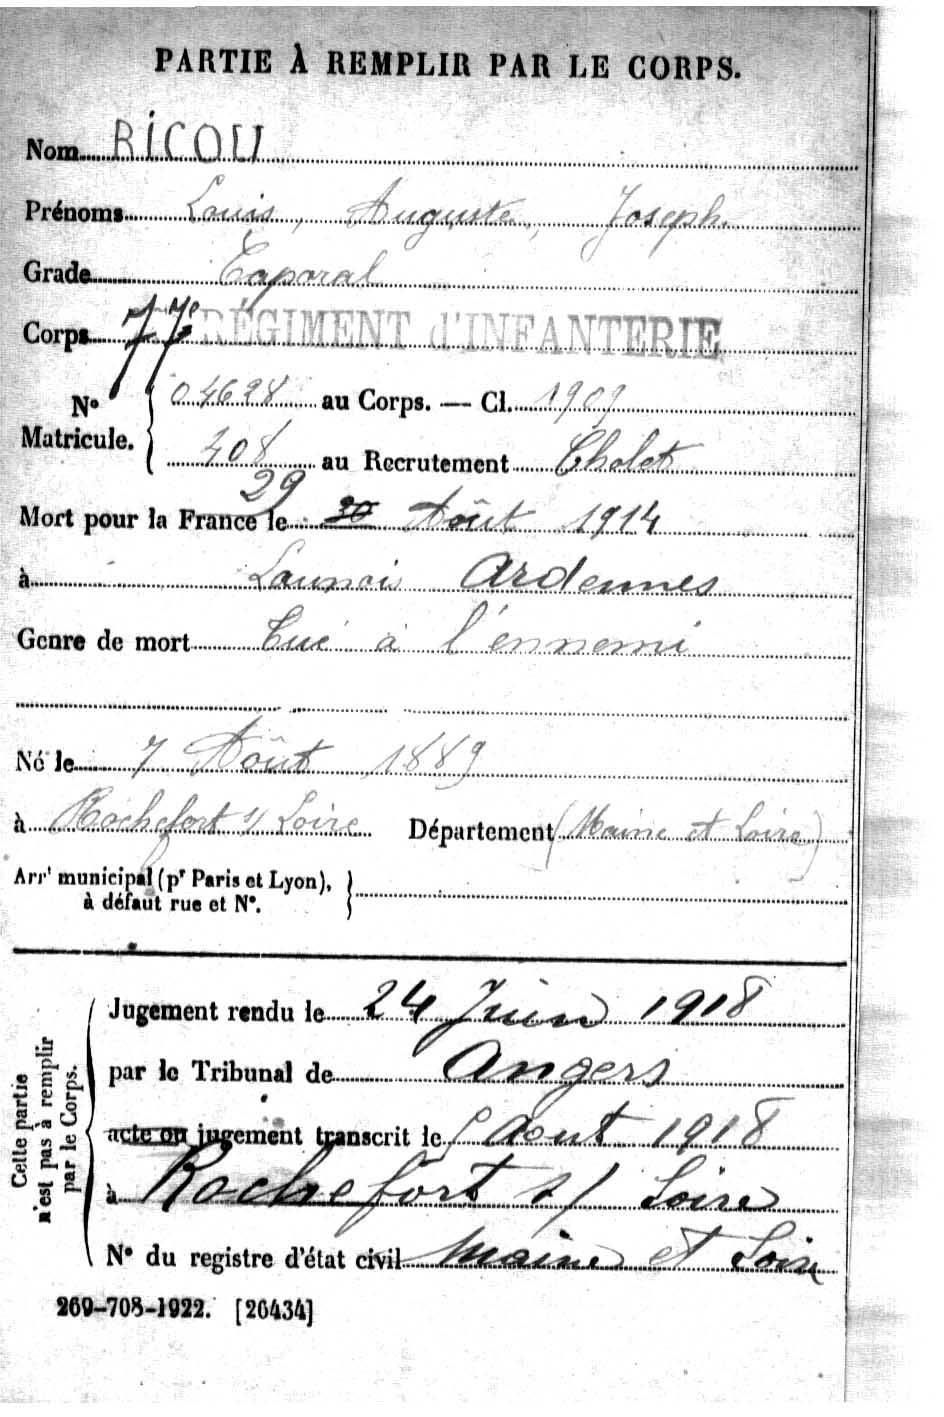 PARTIE À REMPLIR PAR LE CORPS.
Nom RICOU
Prénoms Louis, Auguste, Joseph
Grade Caporal
Corps 77e RÉGIMENT d'INFANTERIE
No Matricule. 04628 au Corps. — Cl. 1909
408 au Recrutement Cholet
29
Mort pour la France le 30 Août 1914
à Launois Ardennes
Genre de mort Tué à l'ennemi
Né le 7 Août 1889
à Rochefort s/ Loire Département (Maine et Loire)
Arrt municipal (pr Paris et Lyon),
à défaut rue et No.
Cette partie n'est pas à remplir par le Corps.
Jugement rendu le 24 Juin 1918
par le Tribunal de Angers
acte ou jugement transcrit le Aout 1918
à Rochefort s/ Loire
No du registre d'état civil Maine et Loire
269-708-1922. [26434]